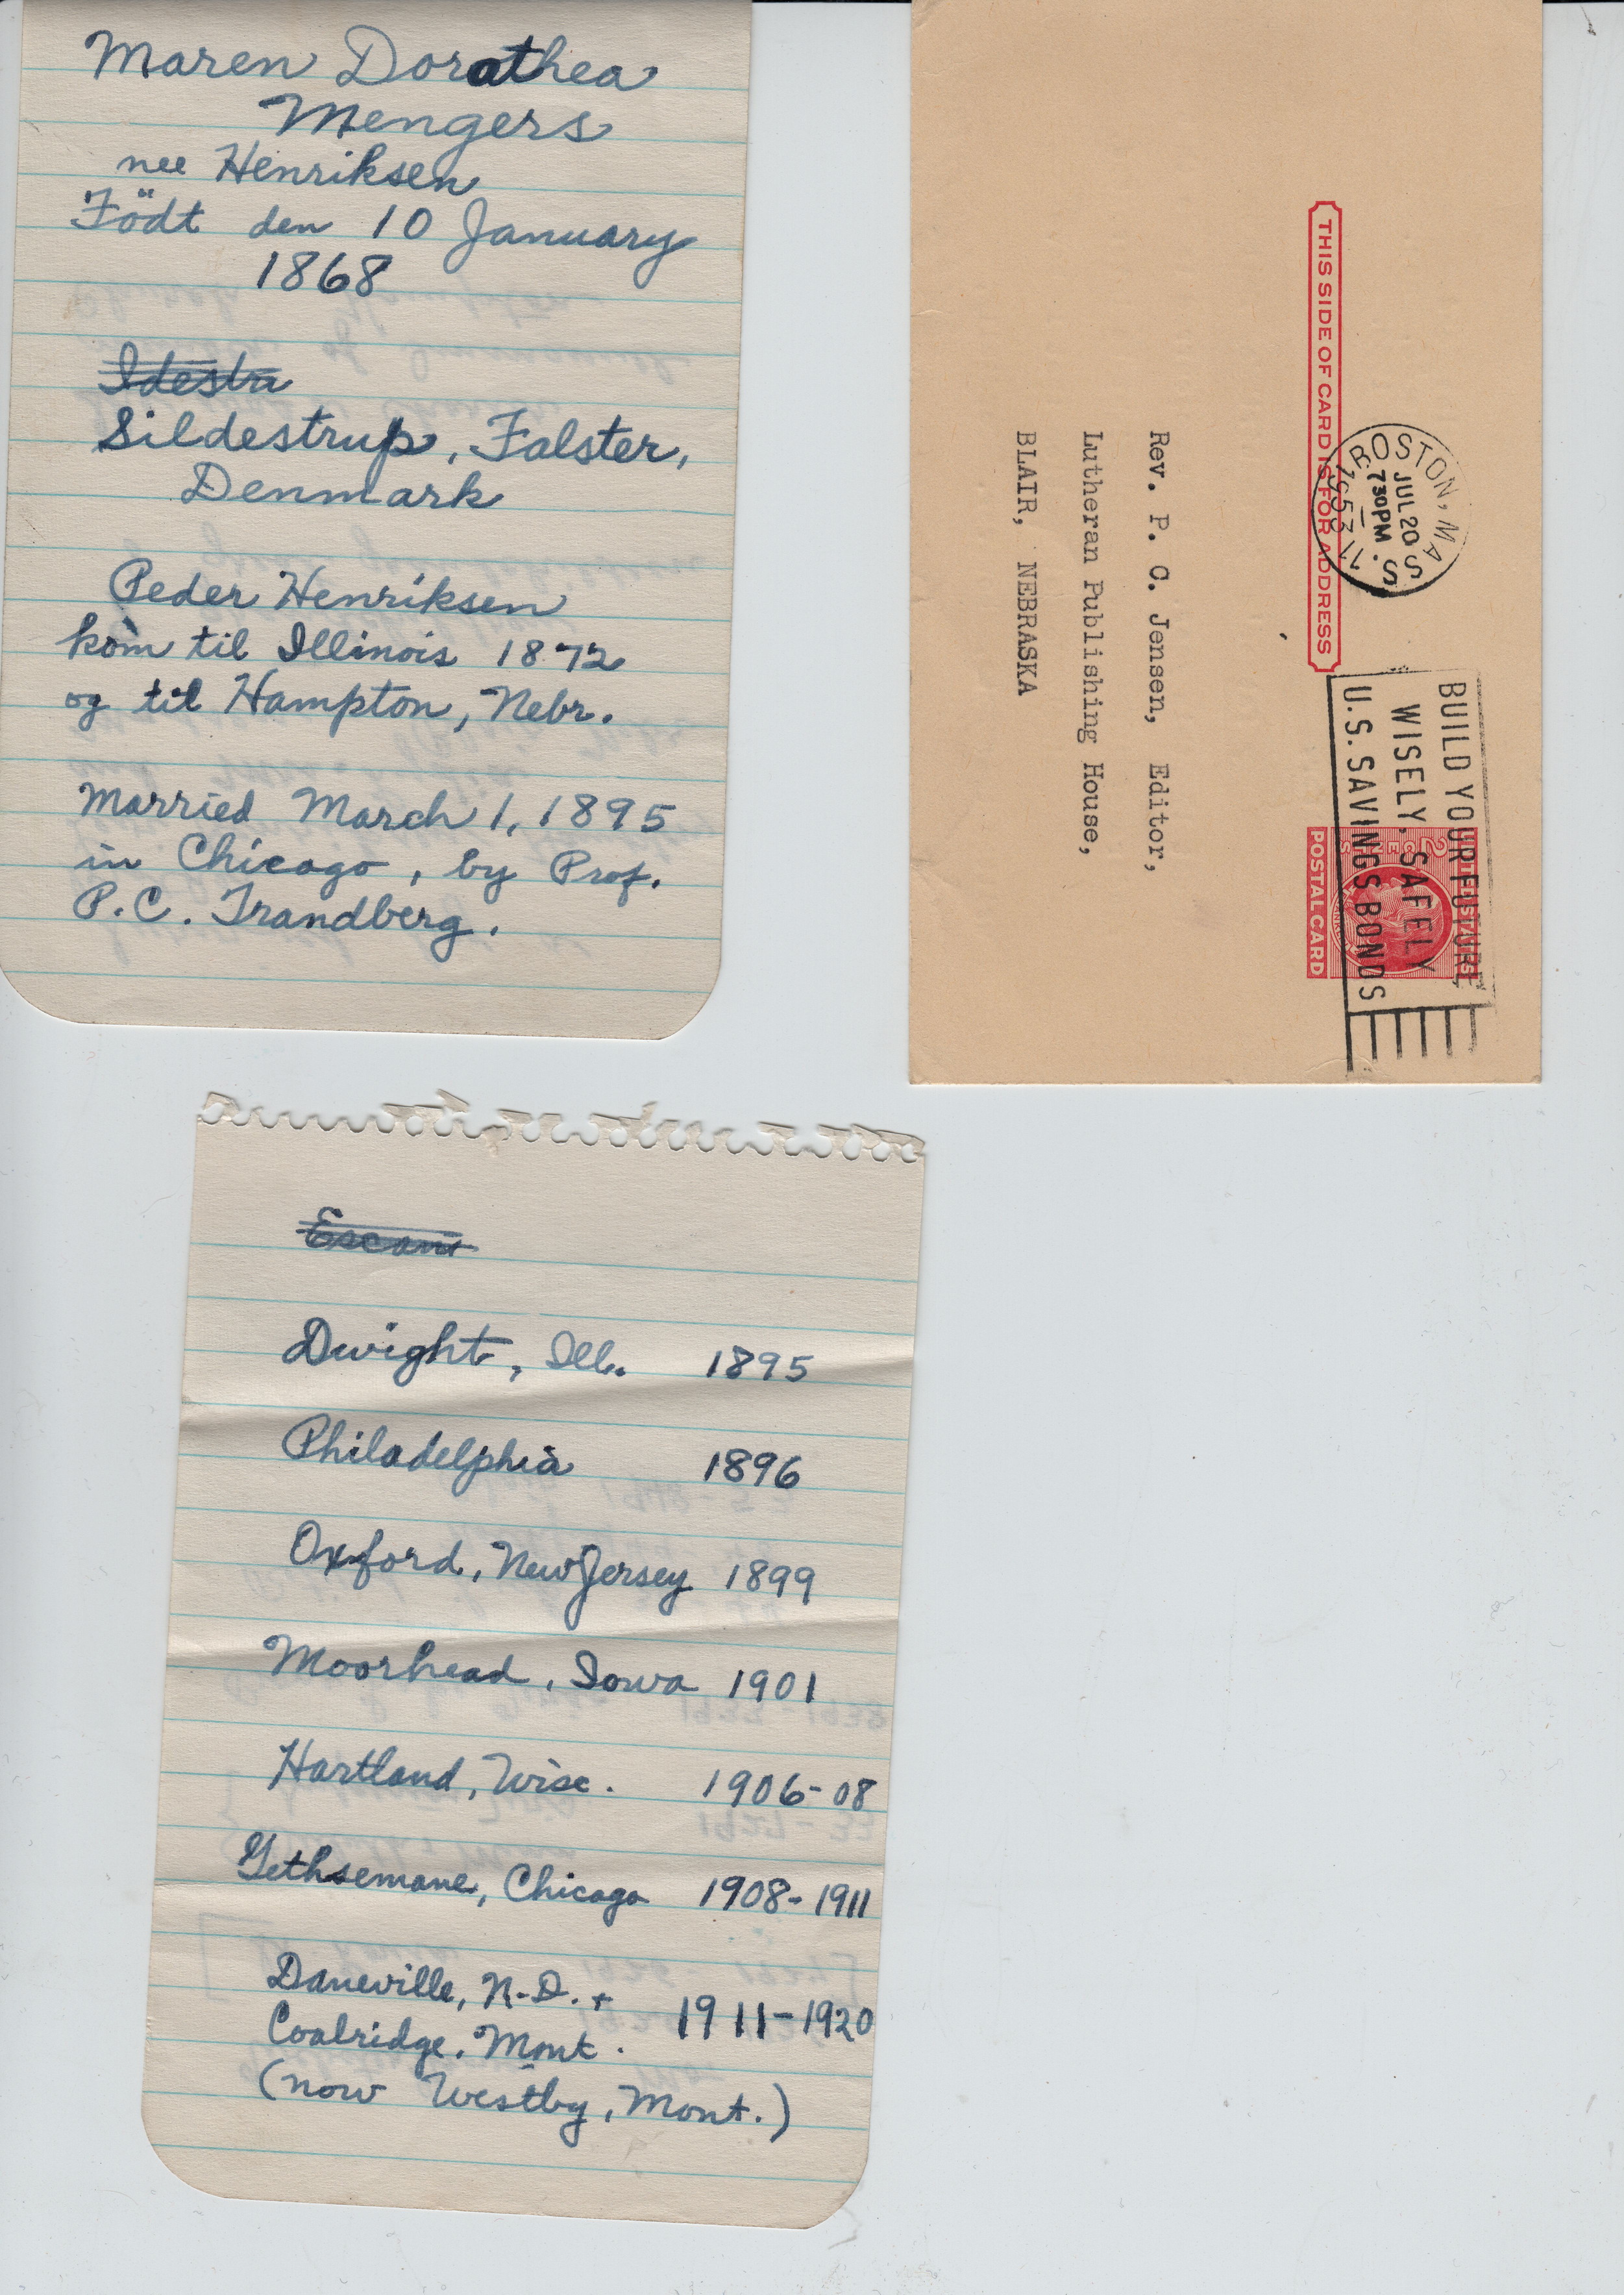 Maren Dorathea
Mengers
nee Henriksen
Födt den 10 January
1868
Idestru
Sildestrup, Falster,
Denmark
Peder Henriksen
kom til Illinois 1872
og til Hampton, Nebr.
Married March 1, 1895
in Chicago, by Prof.
P.C. Trandberg.
THIS SIDE OF CARD IS FOR ADDRESS
BOSTON, MASS.
JUL 20
730 PM
1953
11
BUILD YOUR FUTURE
WISELY, SAFELY
U.S. SAVINGS BONDS
UNITED STATES
POSTAL CARD
Rev. P. C. Jensen, Editor,
Lutheran Publishing House,
BLAIR, NEBRASKA
Escan
Dwight, Ill. 1895
Philadelphia 1896
Oxford, New Jersey 1899
Moorhead, Iowa 1901
Hartland, Wisc. 1906-08
Gethsemane, Chicago 1908-1911
Daneville, N.D. +
Coalridge, Mont. 1911-1920
(now Westby, Mont.)